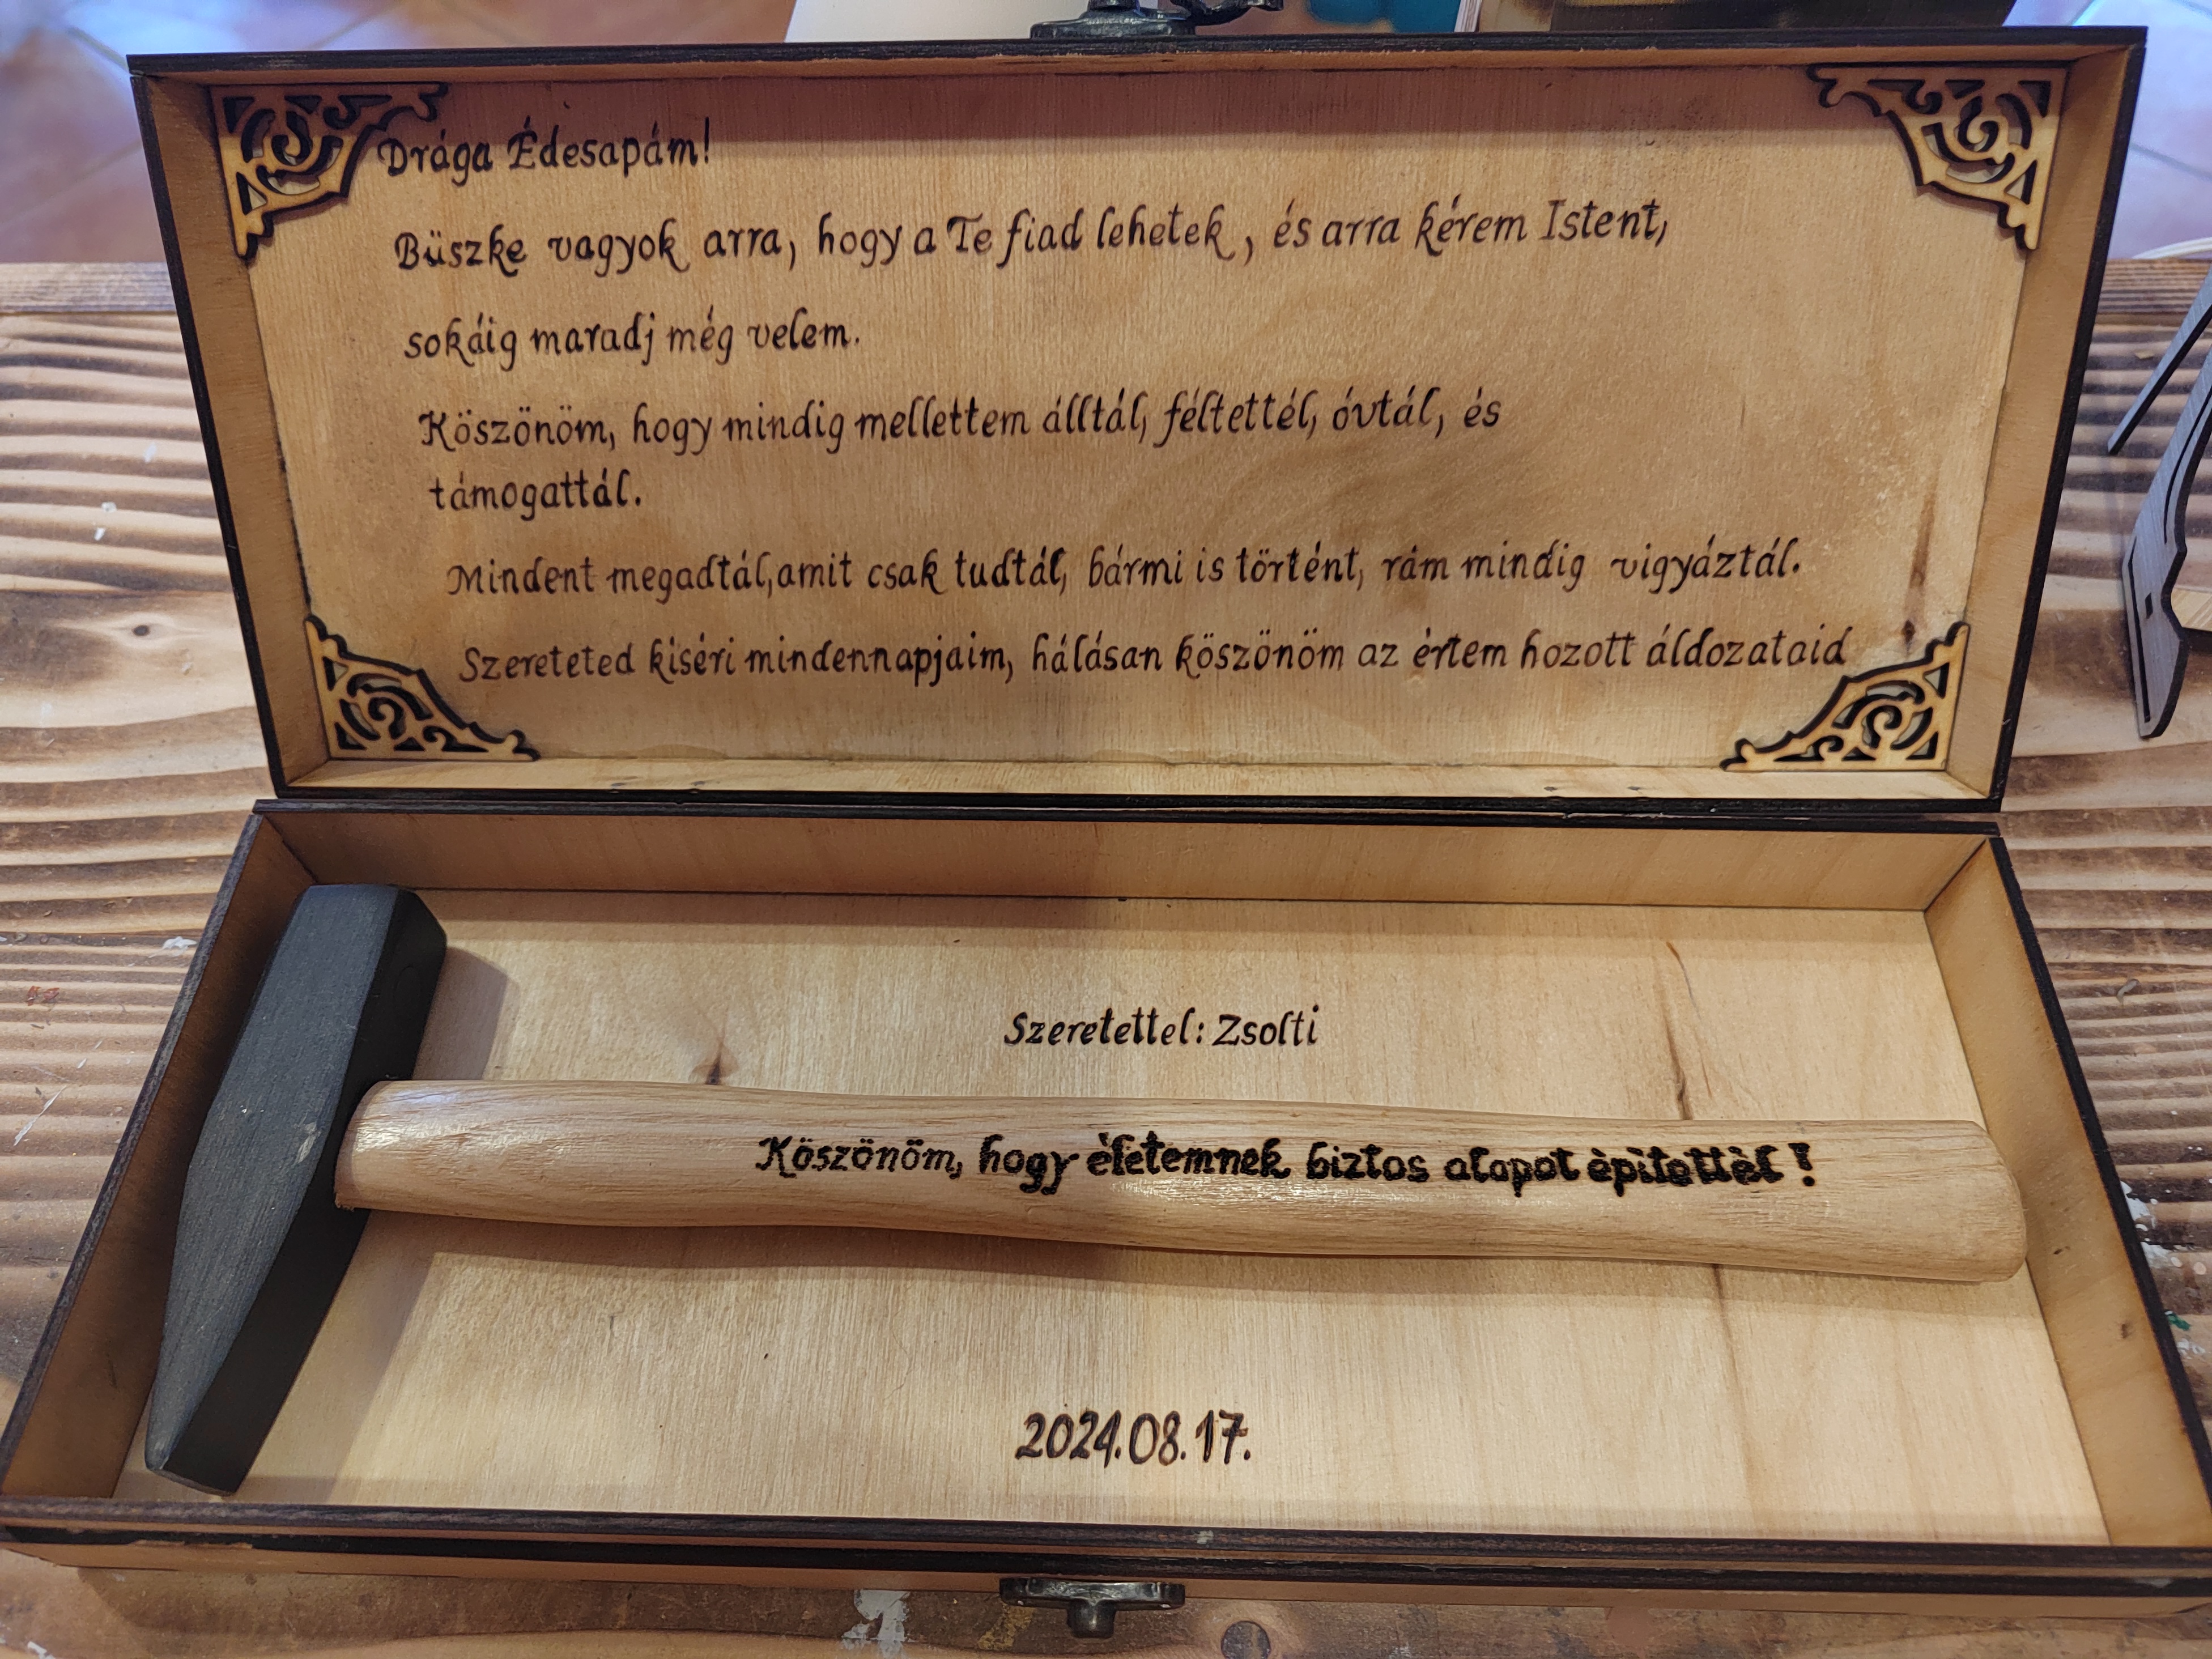 Drága Édesapám!
Büszke vagyok arra, hogy a Te fiad lehetek, és arra kérem Istent,
sokáig maradj még velem.
Köszönöm, hogy mindig mellettem álltál, féltettél, óvtál, és
támogattál.
Mindent megadtál, amit csak tudtál, bármi is történt, rám mindig vigyáztál.
Szereteted kiséri mindennapjaim, hálásan köszönöm az értem hozott áldozataid
Szeretettel: Zsolti
Köszönöm, hogy èletemnek biztos alapot èpitettèl!
2024.08.17.